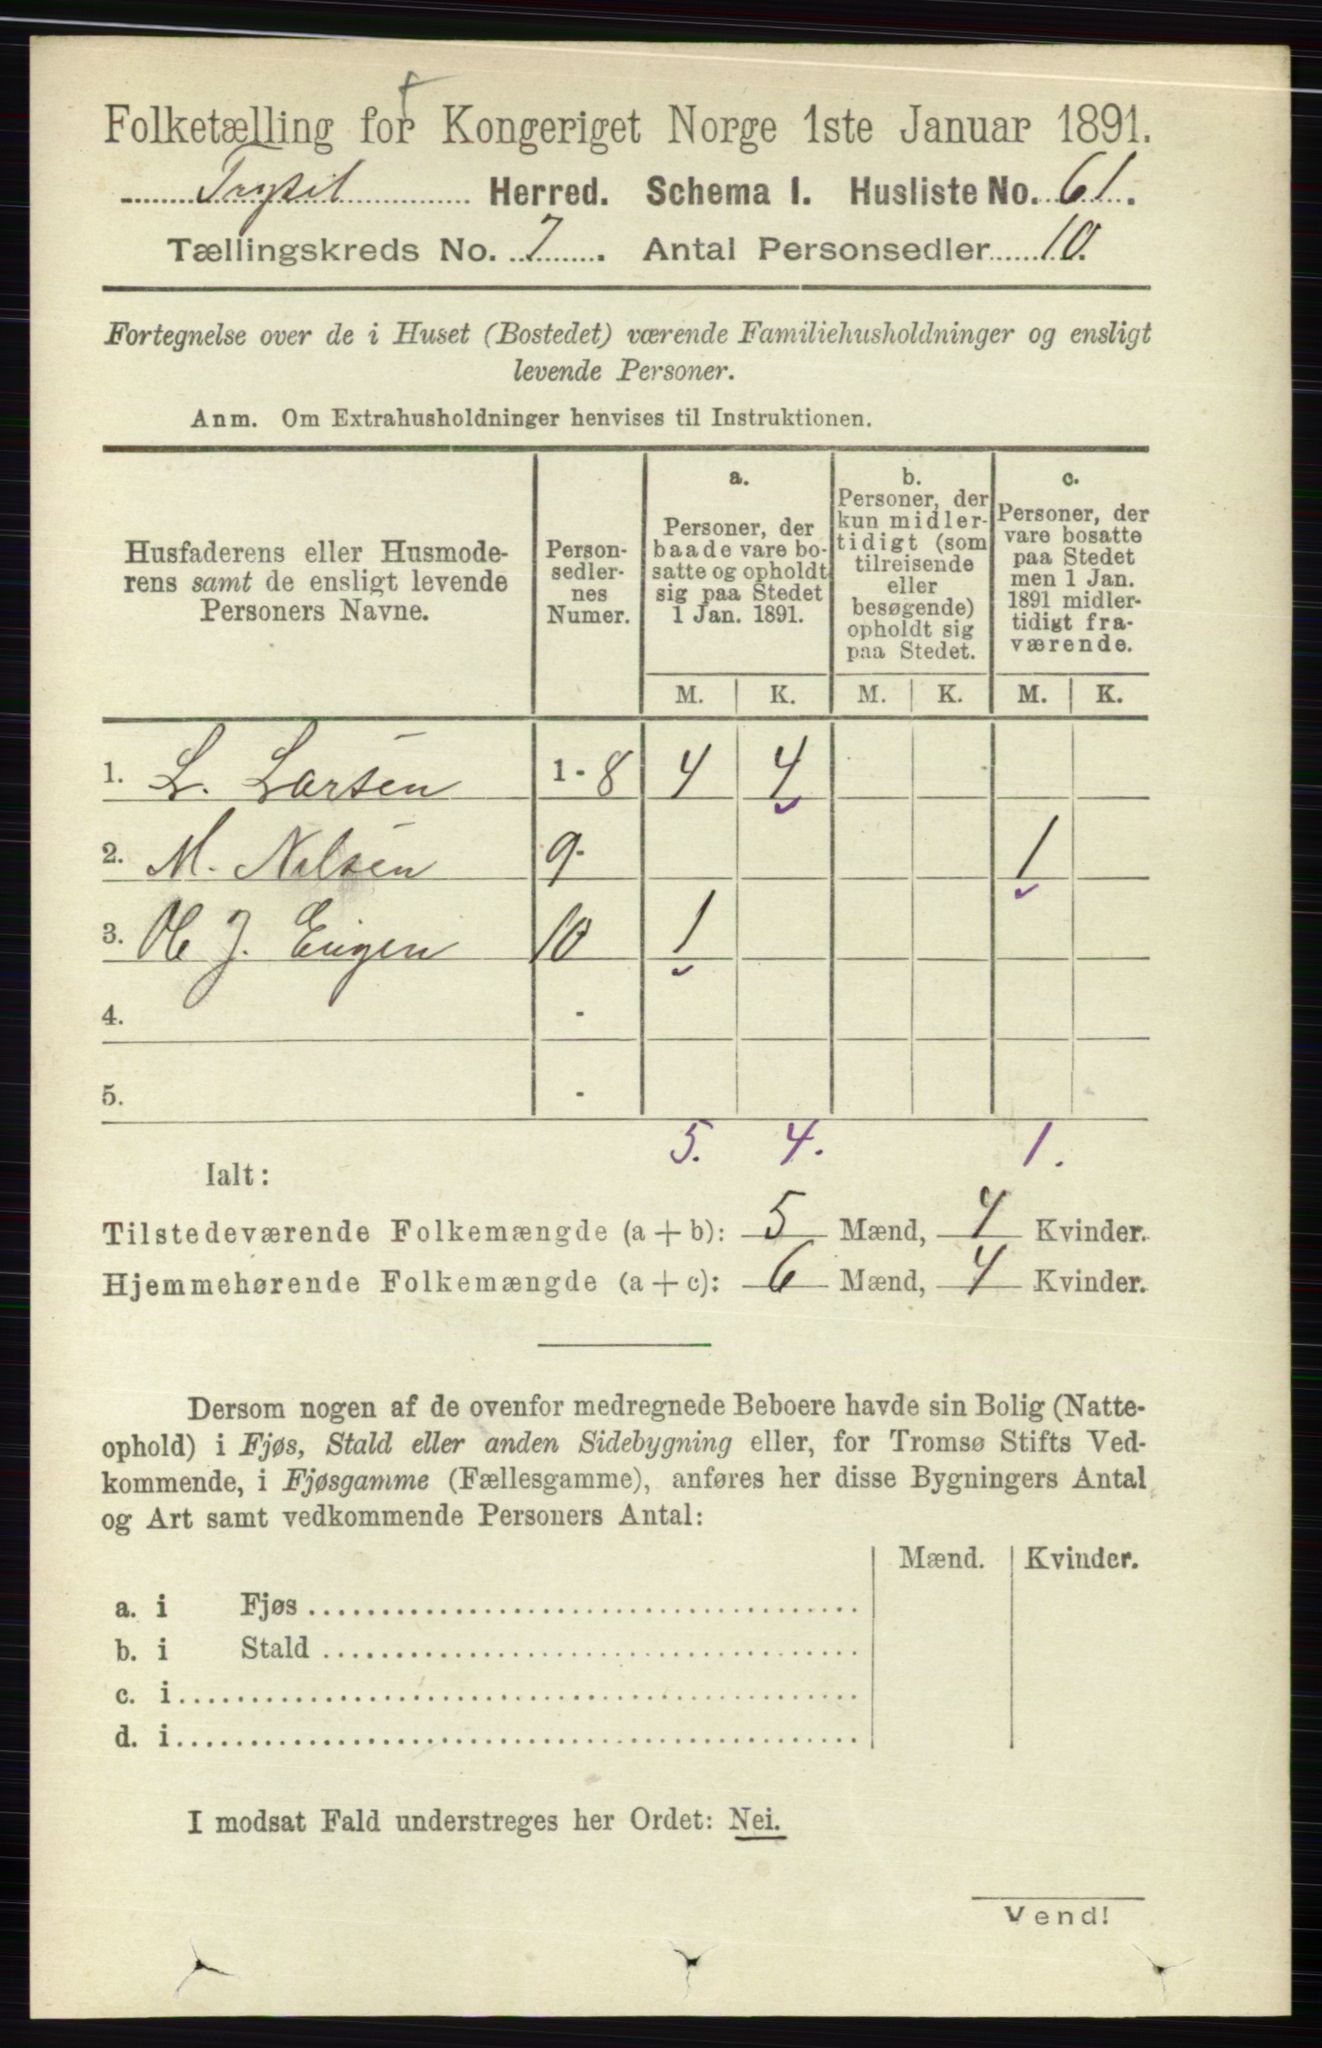 Folketælling for Kongeriget Norge 1ste Januar 1891.
Trysil Herred. Schema I. Husliste No. 61.
Tællingskreds No. 7. Antal Personsedler 10.
Fortegnelse over de i Huset (Bostedet) værende Familiehusholdninger og ensligt
levende Personer.
Anm. Om Extrahusholdninger henvises til Instruktionen.
Husfaderens eller Husmode-
rens samt de ensligt levende
Personers Navne.
Person-
sedler-
nes
Numer.
a.
Personer, der
baade vare bo-
satte og opholdt
sig paa Stedet
1 Jan. 1891.
b.
Personer, der
kun midler-
tidigt (som
tilreisende
eller
besøgende)
opholdt sig
paa Stedet.
c.
Personer, der
vare bosatte
paa Stedet
men 1 Jan.
1891 midler-
tidigt fra-
værende.
M. K. M. K. M. K.
1. L. Larsen 1-8 4 4
2. M. Nilsen 9- 1
3. Ole J. Engen 10 1
4. -
5. -
5. 4. 1.
Ialt:
Tilstedeværende Folkemængde (a + b): 5 Mænd, 4 Kvinder.
Hjemmehørende Folkemængde (a + c): 6 Mænd, 4 Kvinder.
Dersom nogen af de ovenfor medregnede Beboere havde sin Bolig (Natte-
ophold) i Fjøs, Stald eller anden Sidebygning eller, for Tromsø Stifts Ved-
kommende, i Fjøsgamme (Fællesgamme), anføres her disse Bygningers Antal
og Art samt vedkommende Personers Antal:
Mænd. Kvinder.
a. i Fjøs
b. i Stald
c. i
d. i
I modsat Fald understreges her Ordet: Nei.
Vend!